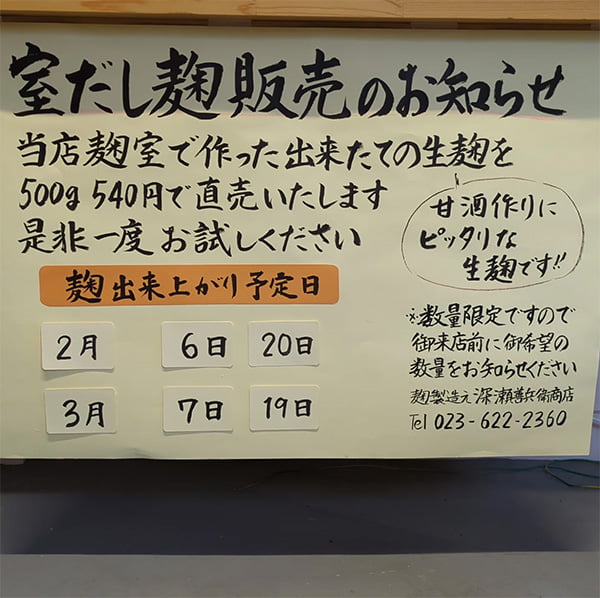 室だし麹販売のお知らせ
当店麹室で作った出来たての生麹を
500g 540円で直売いたします
是非一度 お試しください
甘酒作りに
ピッタリな
生麹です!!
麹出来上がり予定日
2月 6日 20日
3月 7日 19日
※数量限定ですので
御来店前に御希望の
数量をお知らせください
麹製造元 深瀬善兵衛商店
Tel 023-622-2360